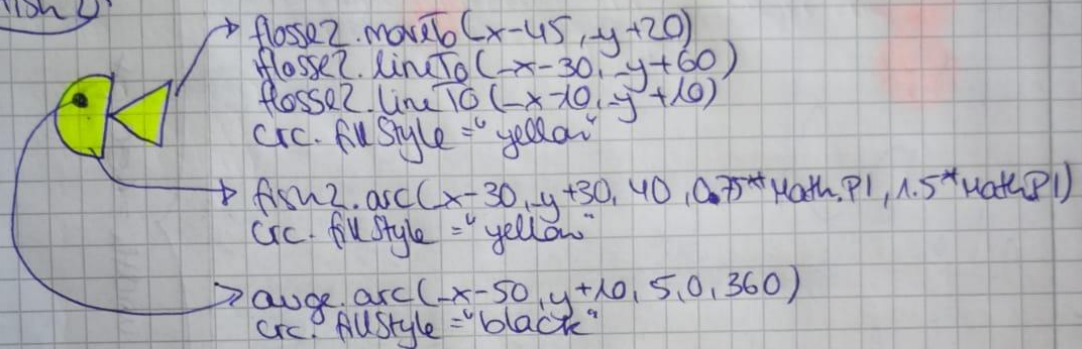 flosse2.moveTo(_x-45,_y+20)
flosse2.lineTo(_x-30,_y+60)
flosse2.lineTo(_x-10,_y+10)
crc.fillStyle="yellow"
fish2.arc(_x-30,_y+30, 40, 0.75*Math.PI, 1.5*Math.PI)
crc.fillStyle="yellow"
auge.arc(_x-50,_y+10, 5, 0, 360)
crc.fillStyle="black"